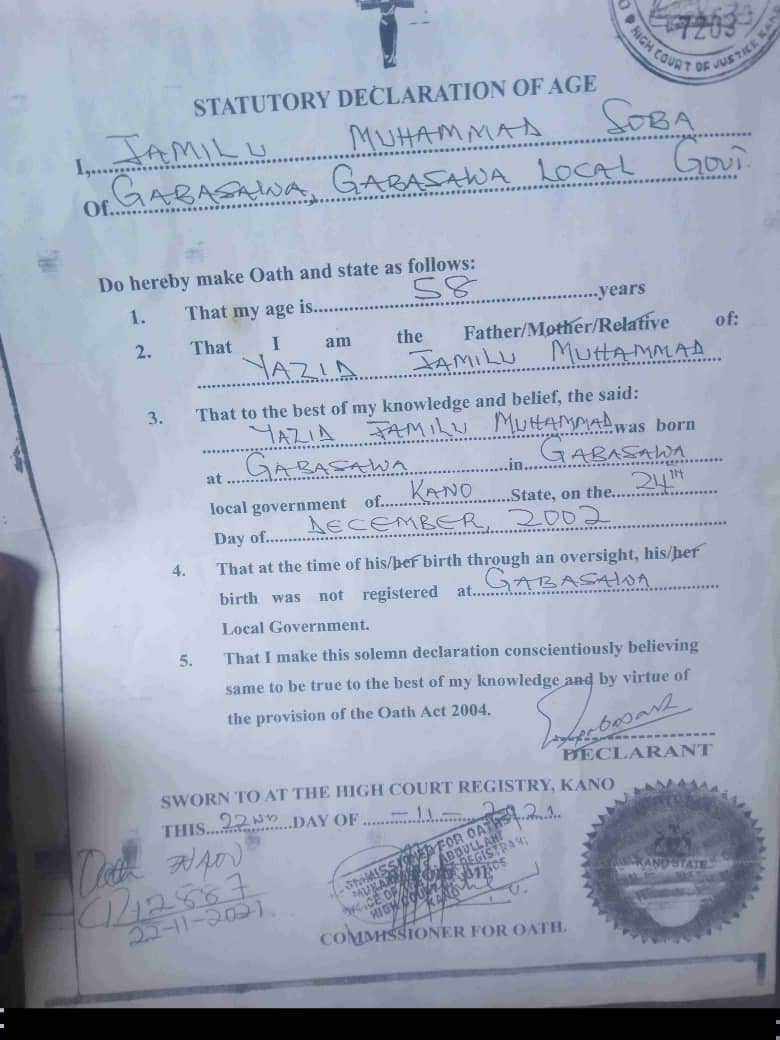 7203
HIGH COURT OF JUSTICE
STATUTORY DECLARATION OF AGE
I,...JAMILU MUHAMMAD SOBA
Of...GABASAWA, GABASAWA LOCAL GOVT.
Do hereby make Oath and state as follows:
1. That my age is...58...years
2. That I am the Father/Mother/Relative of:
YAZID JAMILU MUHAMMAD
3. That to the best of my knowledge and belief, the said:
YAZID JAMILU MUHAMMAD was born
at GABASAWA in GABASAWA
local government of...KANO...State, on the...24TH
Day of...DECEMBER, 2002
4. That at the time of his/her birth through an oversight, his/her
birth was not registered at...GABASAWA
Local Government.
5. That I make this solemn declaration conscientiously believing
same to be true to the best of my knowledge and by virtue of
the provision of the Oath Act 2004.
DECLARANT
SWORN TO AT THE HIGH COURT REGISTRY, KANO
THIS...22ND...DAY OF...-11-2021
Oath
12887
22-11-2021
COMMISSIONER FOR OATHS
ABDULLAHI
REGISTRY
HIGH COURT OF JUSTICE
KANO
BEFORE ME
COMMISSIONER FOR OATH.
KANO STATE